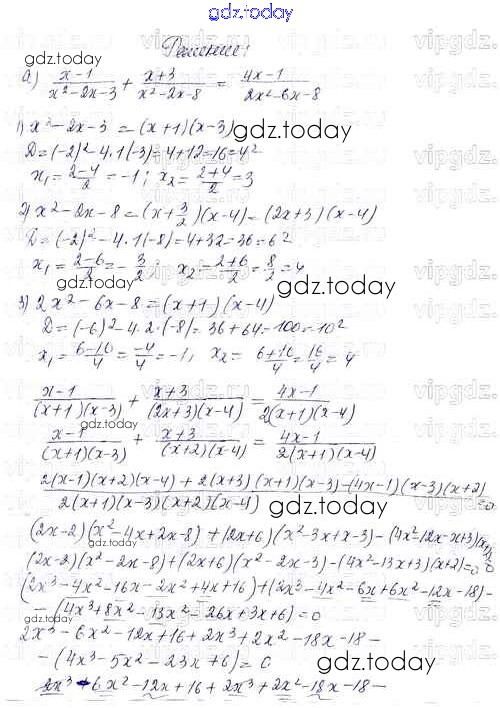 gdz.today
Решение:
а) (x-1)/(x²-2x-3) + (x+3)/(x²-2x-8) = (4x-1)/(2x²-6x-8)
1) x²-2x-3 = (x+1)(x-3)
D = (-2)²-4·1(-3) = 4+12 = 16 = 4²
x₁ = (2-4)/2 = -1; x₂ = (2+4)/2 = 3
2) x²-2x-8 = (x+3/2)(x-4) = (2x+3)(x-4)
D = (-2)²-4·1(-8) = 4+32 = 36 = 6²
x₁ = (2-6)/2 = -3/2; x₂ = (2+6)/2 = 8/2 = 4
3) 2x²-6x-8 = (x+1)(x-4)
D = (-6)²-4·2·(-8) = 36+64 = 100 = 10²
x₁ = (6-10)/4 = -4/4 = -1, x₂ = (6+10)/4 = 16/4 = 4
(x-1)/((x+1)(x-3)) + (x+3)/((2x+3)(x-4)) = (4x-1)/(2(x+1)(x-4))
(x-1)/((x+1)(x-3)) + (x+3)/((x+2)(x-4)) = (4x-1)/(2(x+1)(x-4))
(2(x-1)(x+2)(x-4) + 2(x+3)(x+1)(x-3) - (4x-1)(x-3)(x+2))/(2(x+1)(x-3)(x+2)(x-4)) = 0
(2x-2)(x²-4x+2x-8) + (2x+6)(x²-3x+x-3) - (4x²-12x-x+3)(x+2)=0
(2x-2)(x²-2x-8)+(2x+6)(x²-2x-3)-(4x²-13x+3)(x+2)=0
(2x³-4x²-16x-2x²+4x+16)+(2x³-4x²-6x+6x²-12x-18)-
-(4x³+8x²-13x²-26x+3x+6)=0
2x³-6x²-12x+16+2x³+2x²-18x-18-
-(4x³-5x²-23x+6)=0
2x³-6x²-12x+16+2x³+2x²-18x-18-